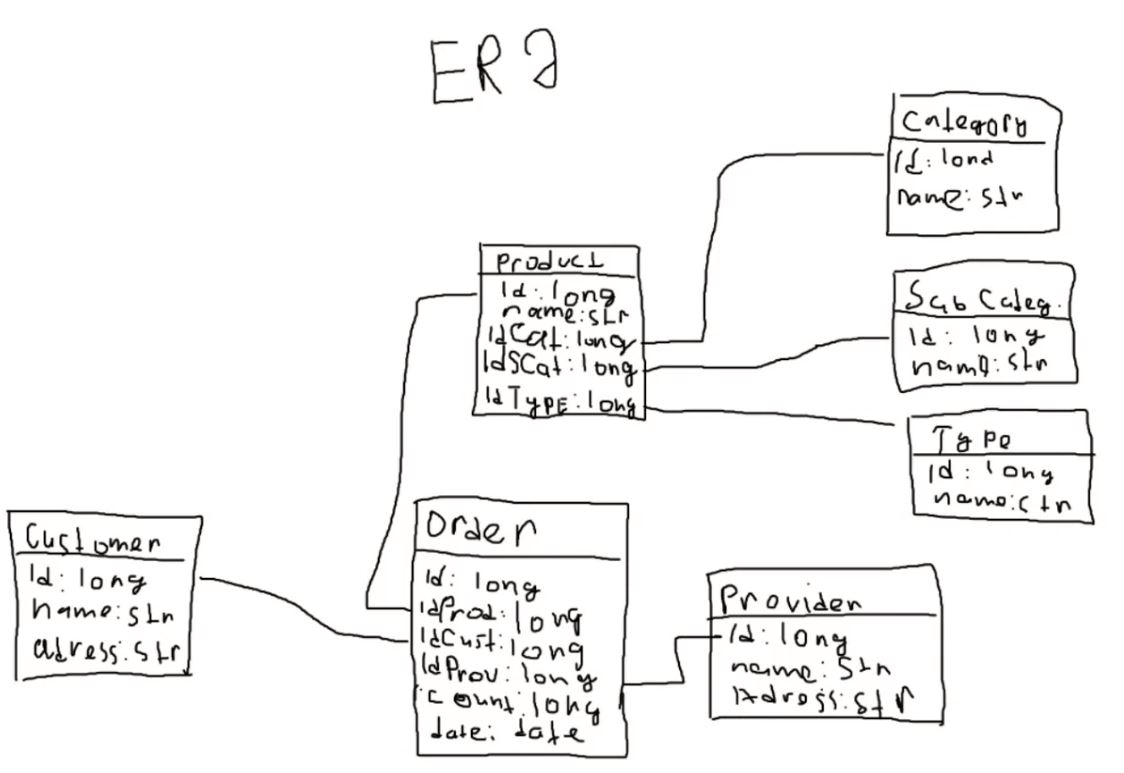 ER 2
Category
Id: lond
name: str
Product
Id: long
name: str
IdCat: long
IdSCat: long
IdType: long
Sub Categ.
Id: long
name: str
Type
Id: long
name: str
Customer
Id: long
name: str
adress: str
Order
Id: long
IdProd: long
IdCust: long
IdProv: long
count: long
date: date
Provider
Id: long
name: str
Adress: str